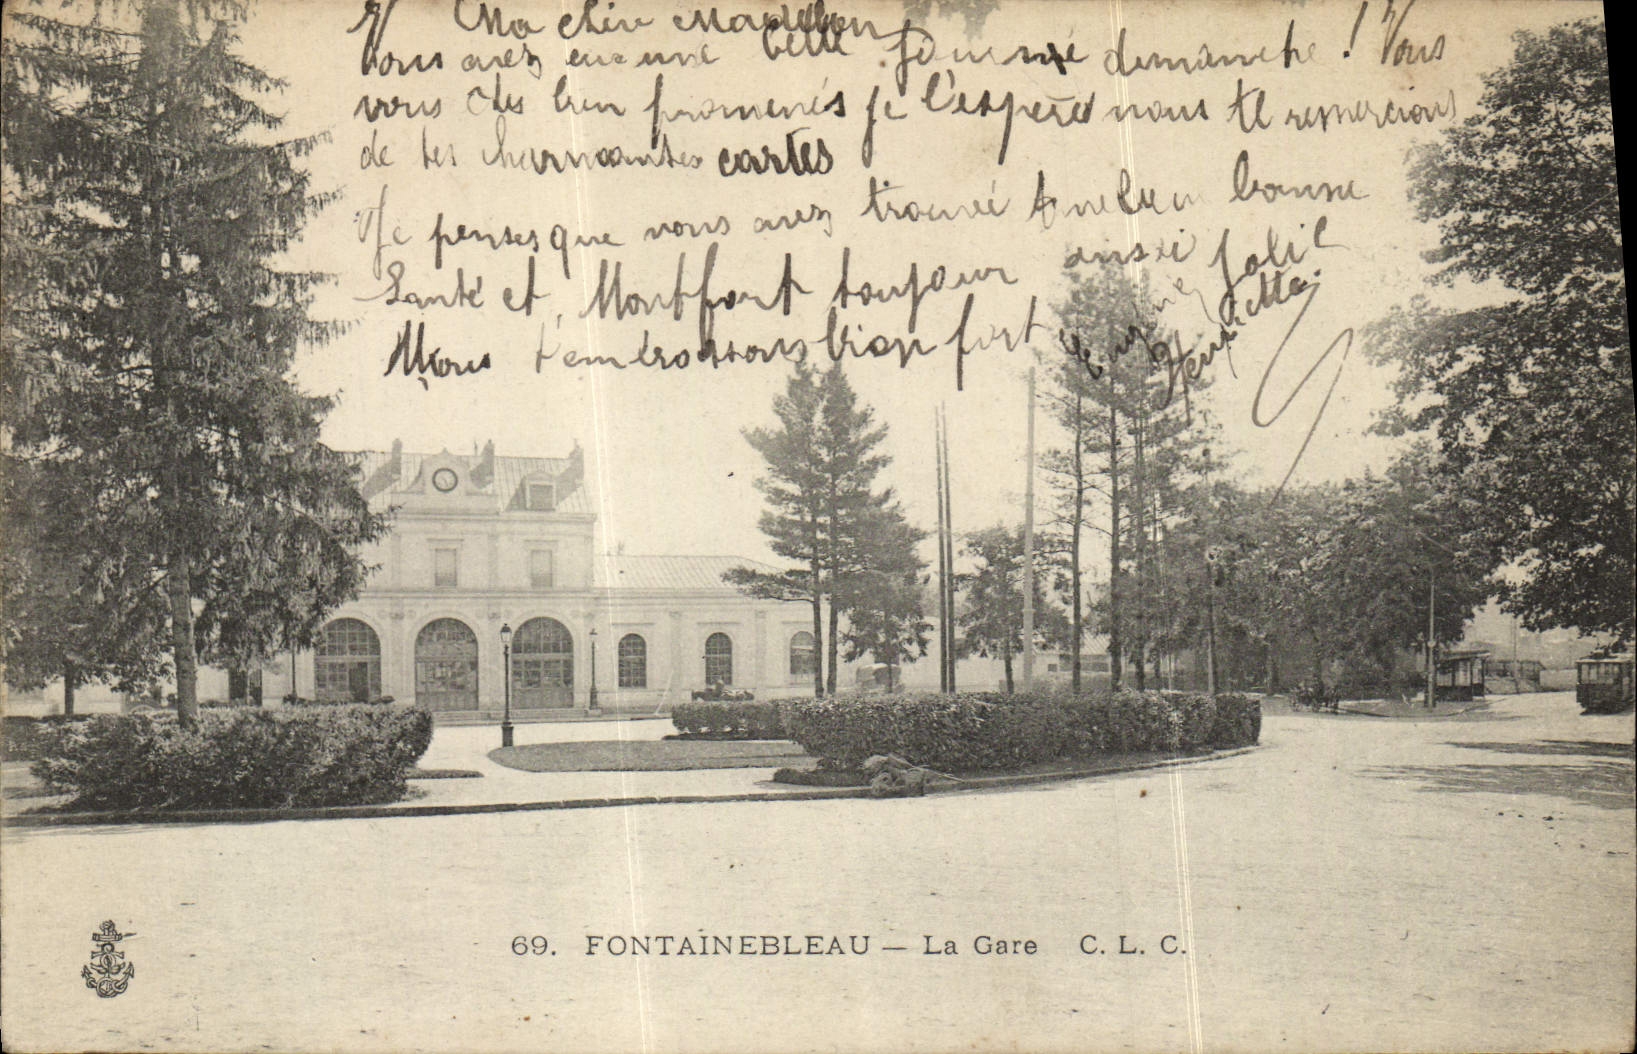 Ma chère Madelon
Vous avez eu une belle journée dimanche ! Vous
vous êtes bien promenés je l'espère nous te remercions
de tes charmantes cartes
Je penses que vous avez trouvé bonne
Santé et Montfort toujour aussi joli
Nous t'embrassons bien fort
Eugène
Henriette
69. FONTAINEBLEAU — La Gare C. L. C.